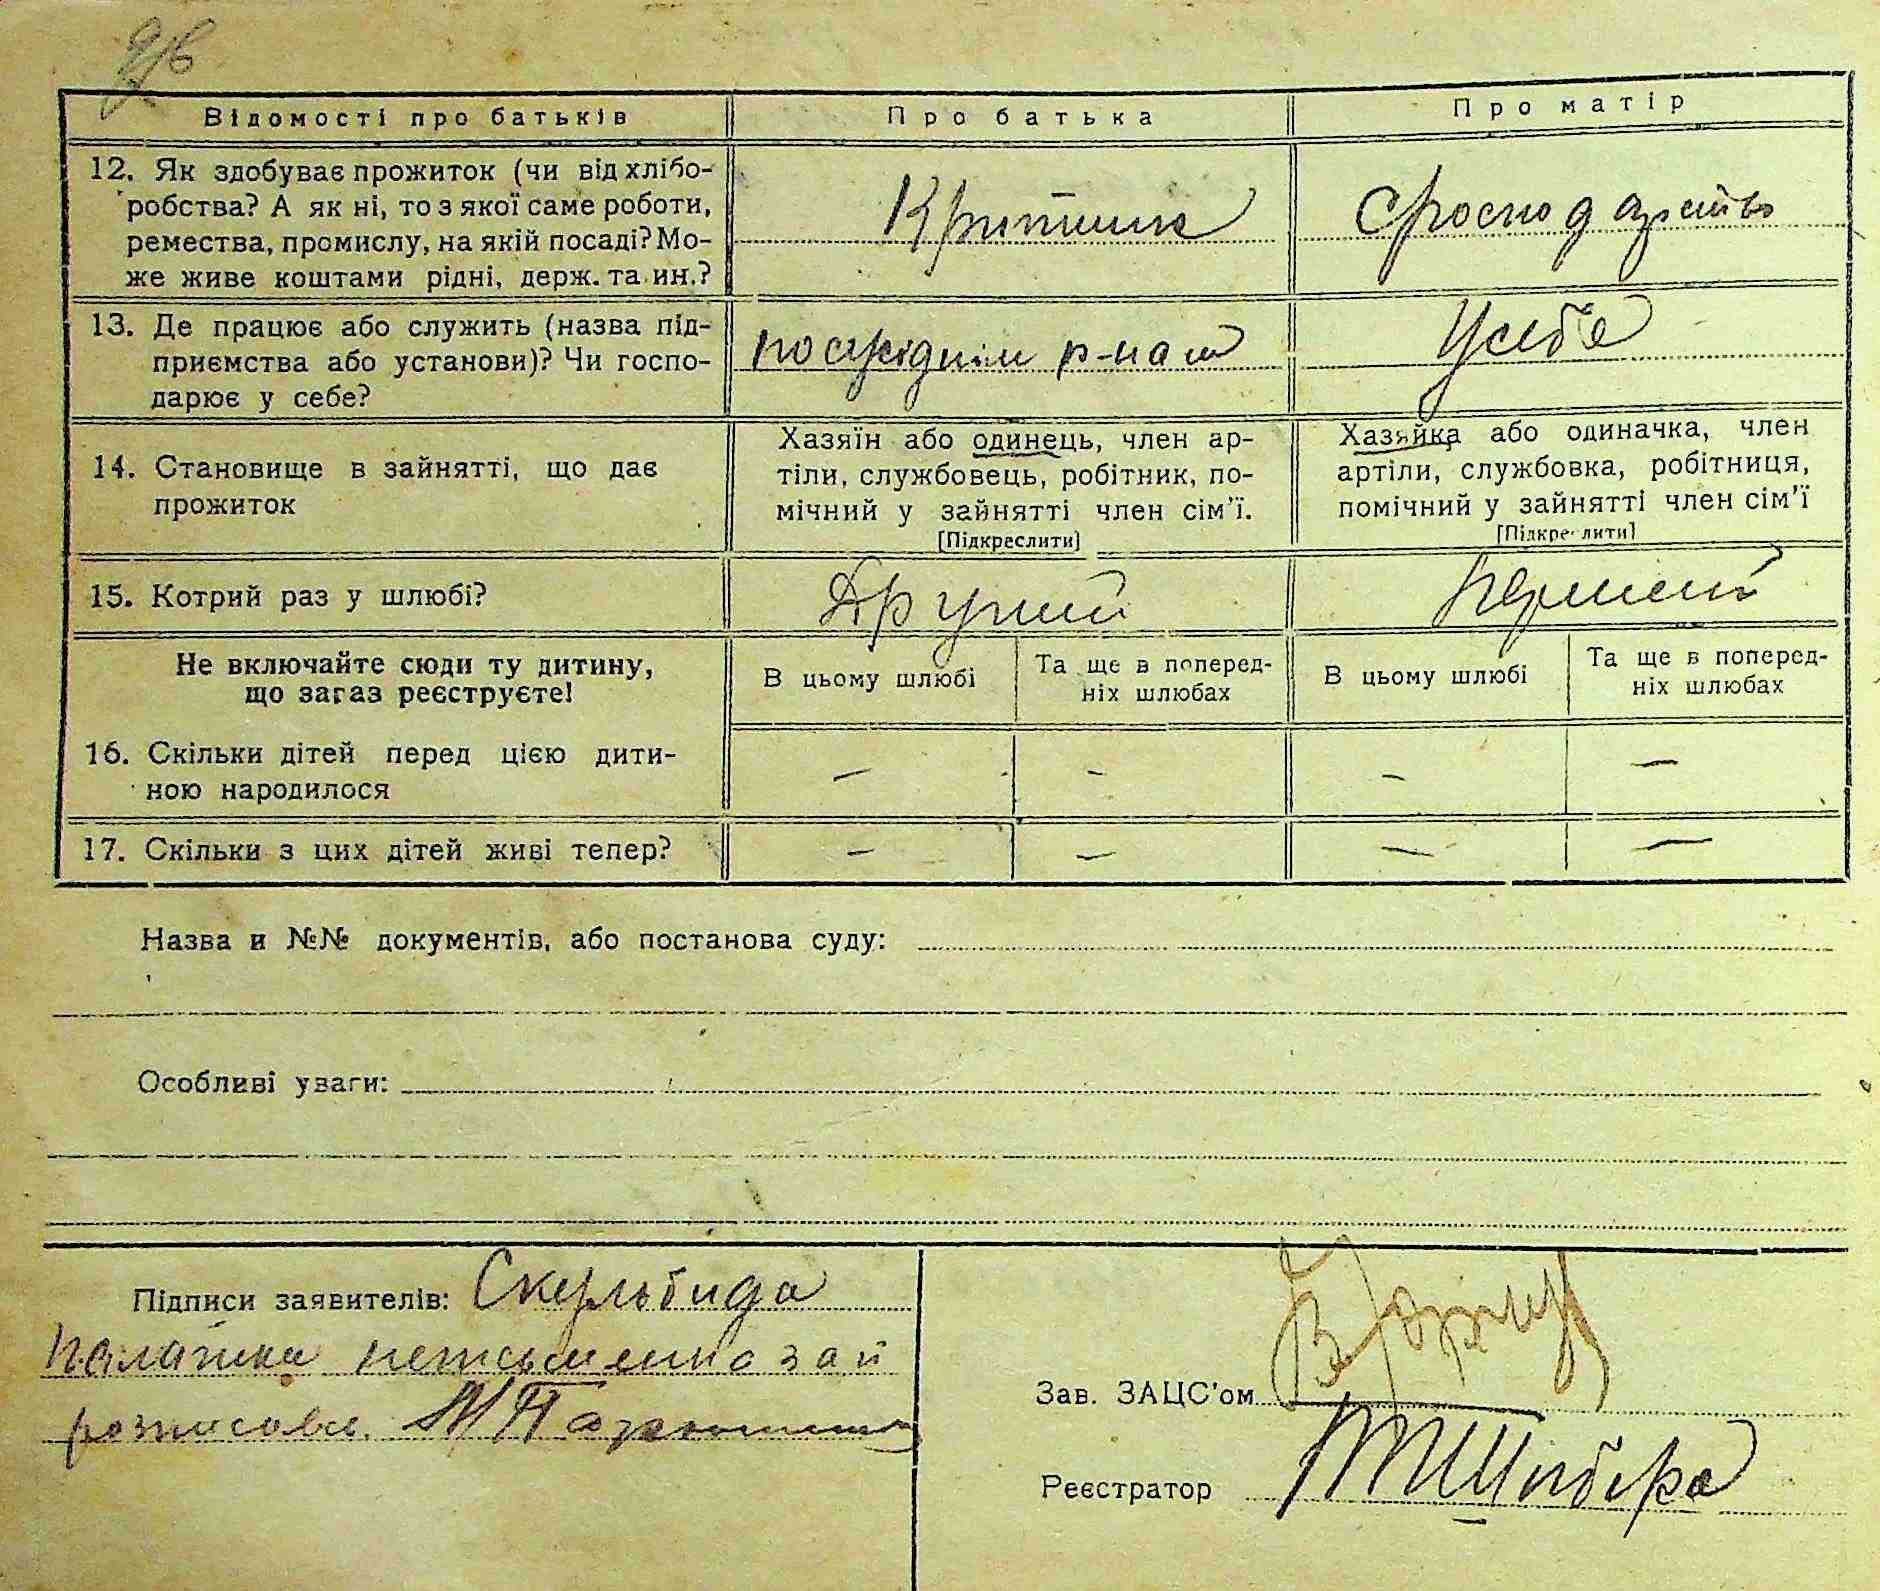 Відомості про батьків
Про батька
Про матір
12. Як здобуває прожиток (чи від хлібо-
робства? А як ні, то з якої саме роботи,
ремества, промислу, на якій посаді? Мо-
же живе коштами рідні, держ. та ин.?
13. Де працює або служить (назва під-
приємства або установи)? Чи госпо-
дарює у себе?
по сусідн р-нам
У себе
14. Становище в зайнятті, що дає
прожиток
Хазяїн або одинець, член ар-
тіли, службовець, робітник, по-
мічний у зайнятті член сім'ї.
[Підкреслити]
Хазяйка або одиначка, член
артіли, службовка, робітниця,
помічний у зайнятті член сім'ї
[Підкреслити]
15. Котрий раз у шлюбі?
Другий
Перший
Не включайте сюди ту дитину,
що зараз реєструєте!
В цьому шлюбі
Та ще в поперед-
ніх шлюбах
В цьому шлюбі
Та ще в поперед-
ніх шлюбах
16. Скільки дітей перед цією дити-
ною народилося
— — — —
17. Скільки з цих дітей живі тепер?
— — — —
Назва и №№ документів, або постанова суду:
Особливі уваги:
Підписи заявителів: Скульбида
Палажка неписьменна за її
розписався
Зав. ЗАЦС'ом
Реєстратор